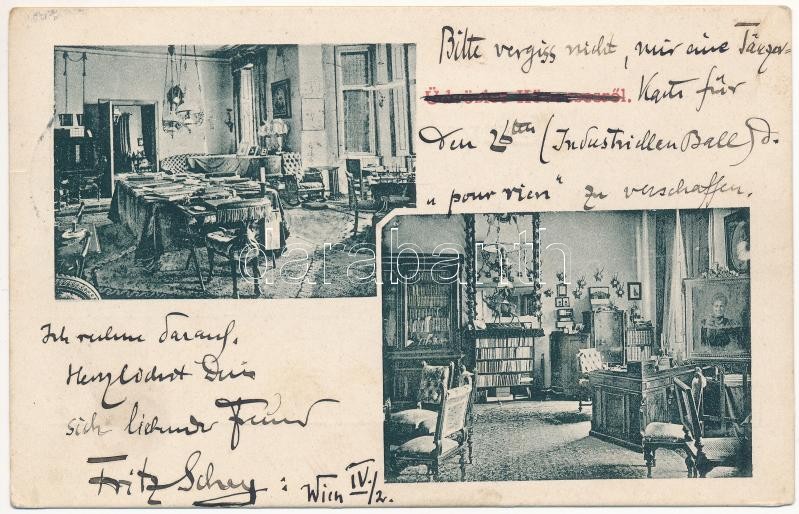 Bitte vergiss nicht, mir eine Tänzer-
Karte für
den 26ten (Industriellen Ball) d.
"pour rien" zu verschaffen.
darabanth
Ich rechne darauf.
Herzlichst Dein
sich liebender Freund
Fritz Schey:
Wien IV/2.